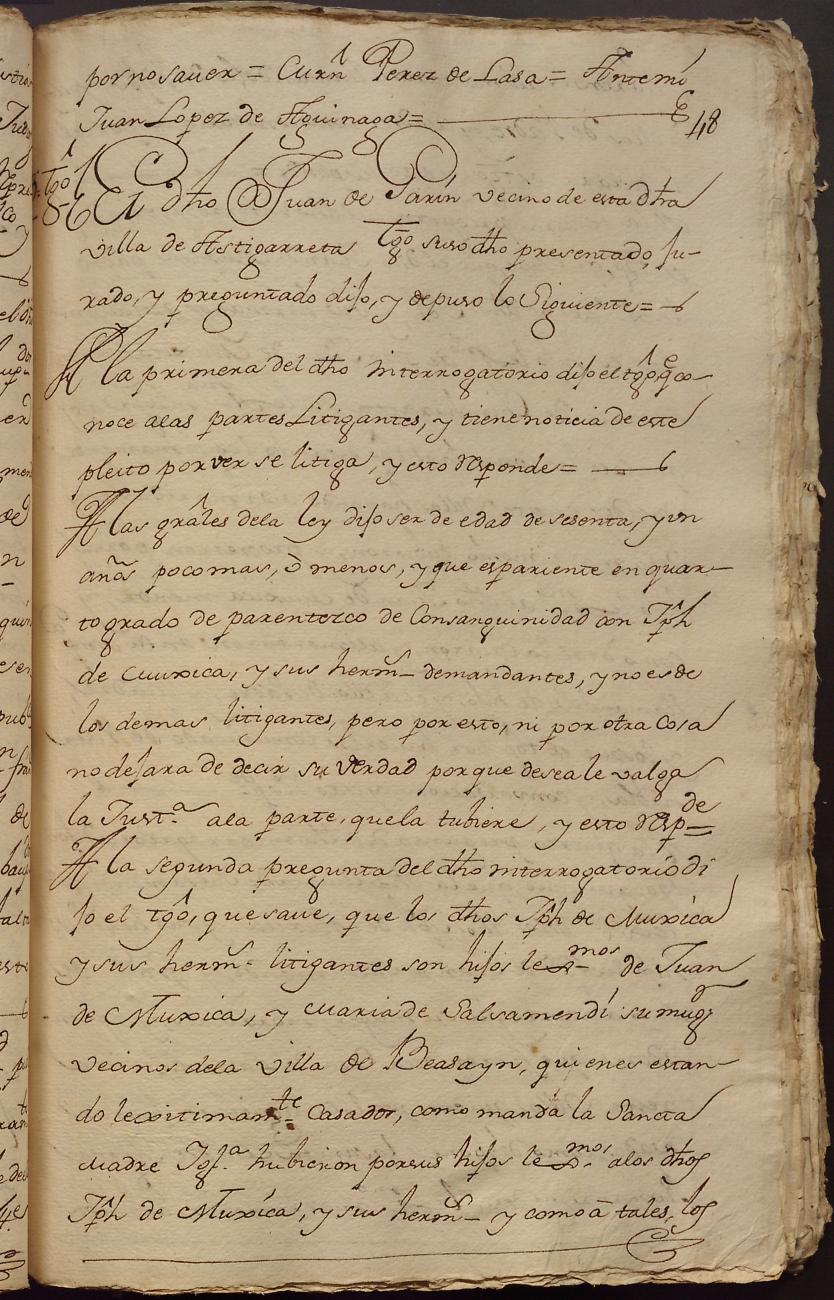 por no saver = Curñ Perez de Lasa = Antemi
Juan Lopez de Aguinaga =
48
tgo 6
El dho Juan de Garin vecino de esta dha
villa de Astigarreta tgo suso dho presentado, ju-
rado, y preguntado dijo, y depuso lo Siguiente =
A la primera del dho interrogatorio dijo el tgo, qe co-
noce a las partes Litigantes, y tiene noticia de este
pleito por ver se litiga, y esto responde =
A las grâles de la ley dijo ser de edad de sesenta, y un
años poco mas, ò menos, y que es pariente en quar-
to grado de parentezco de Consanguinidad con Jph
de Muxica, y sus herms demandantes, y no es de
los demas litigantes, pero por esto, ni por otra Cosa
no dejara de decir su verdad porque desea le valga
la Justa ala parte, que la tubiere, y esto respde =
A la segunda pregunta del dho interrogatorio di
jo el tgo, que save, que los dhos Jph de Muxica
y sus herms litigantes son hijos lexmos de Juan
de Muxica, y Maria de Salsamendi su mugr
vecinos de la villa de Beasayn, quienes estan-
do lexitimamte Casados, como manda la Sancta
Madre Iglª hubieron por sus hijos lexmos alos dhos
Jph de Muxica, y sus herms y como à tales, los